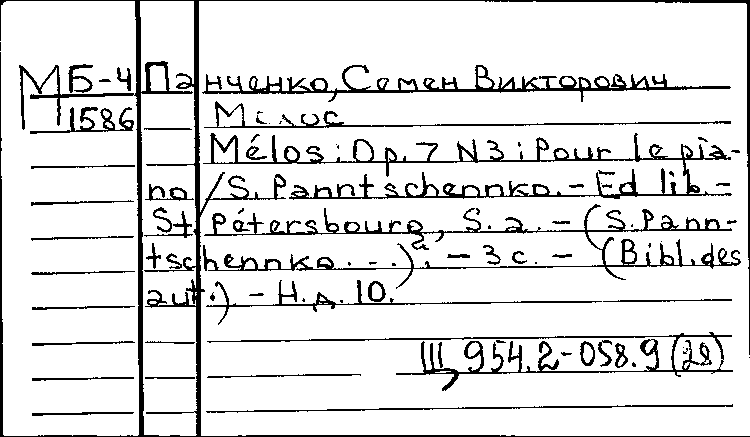 МБ-4 Панченко, Семен Викторович
1586 Мелос
Mélos: Op. 7 N3: Pour le pia-
no / S. Panntschennko. - Ed lib. -
St Pétersbourg, S. a. - (S. Pann-
tschennko...). - 3 с. - (Bibl. des
aut.) - Н. д. 10.
Щ 954.2-058.9 (28)